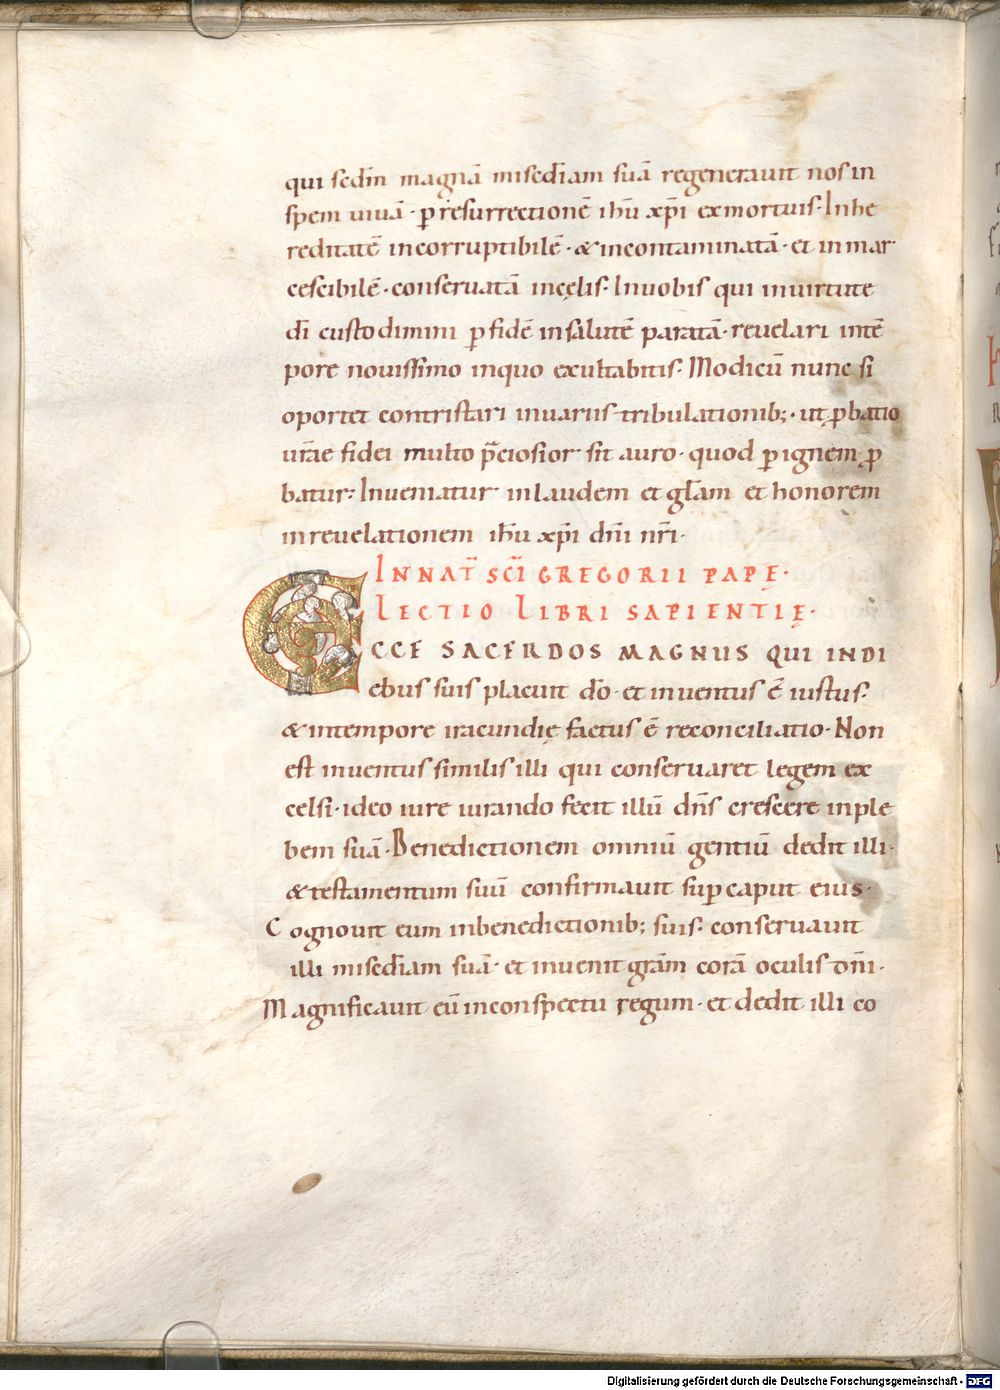 qui scdm̄ magnā misedīam suā regenerauit nos in
spem uiuā · p̱ resurrectionē ihū xp̄i ex mortuis · In he
reditatē incorruptibilē · & incontaminatā · et inmar
cescibilē · conseruatā in cęlis · In uobis qui in uirtute
dī custodimini p̱ fidē in salutē paratā · reuelari in tē
pore nouissimo in quo exultabitis · Modicū nunc si
oportet contristari in uariis tribulationib; · ut ꝓbatio
ur̄ae fidei multo p̄ciosior sit auro · quod p̱ ignem ꝓ
batur: Inueniatur in laudem et glām et honorem
in reuelationem ihū xp̄i dn̄i nr̄i ·
IN NAT̄ SC̄I GREGORII PAPĘ ·
LECTIO LIBRI SAPIENTIĘ ·
ECCE SACERDOS MAGNUS QUI IN DI
ebus suis placuit dō · et inuentus ē iustus ·
& in tempore iracundię factus ē reconciliatio · Non
est inuentus similis illi qui conseruaret legem ex
celsi · ideo iure iurando fecit illū dn̄s crescere in ple
bem suā · Benedictionem omniū gentiū dedit illi ·
& testamentum suū confirmauit sup̱ caput eius ·
Cognouit eum in benedictionib; suis · conseruauit
illi misedīam suā · et inuenit grām corā oculis dn̄i ·
Magnificauit eū in conspectu regum · et dedit illi co
Digitalisierung gefördert durch die Deutsche Forschungsgemeinschaft - DFG